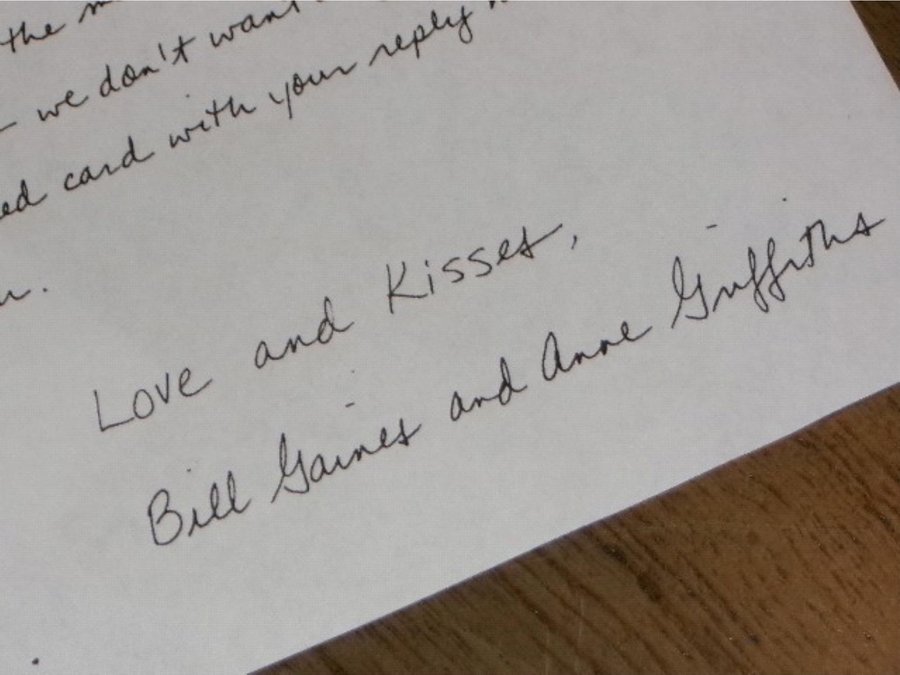 the
we don't want
card with your reply
Love and Kisses,
Bill Gaines and Anne Griffiths